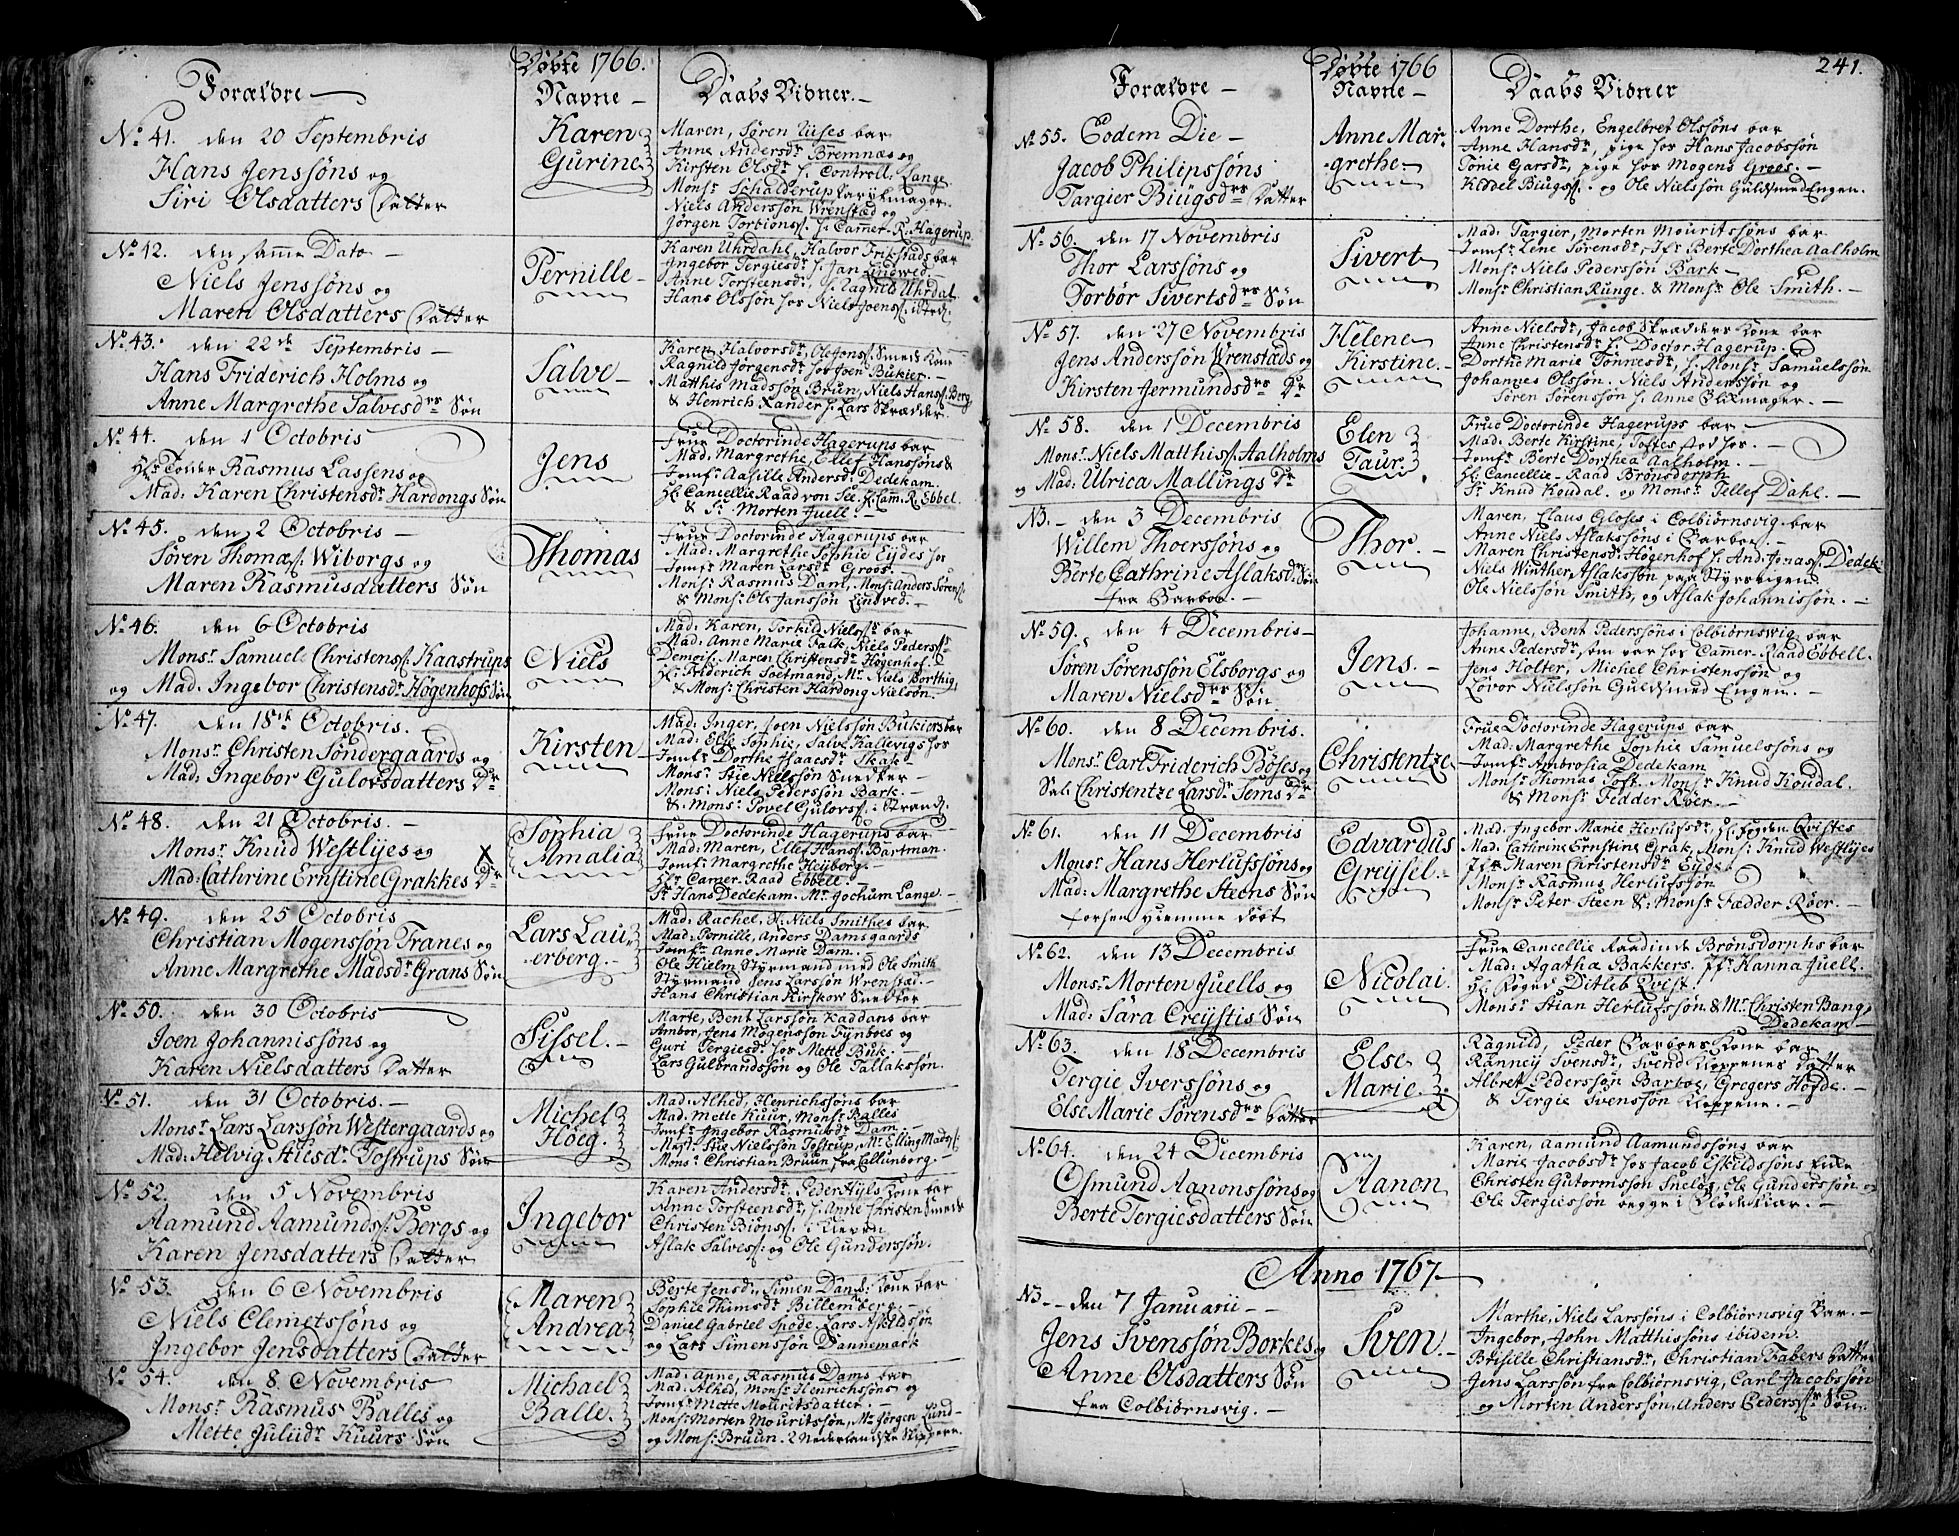 Forældre
Døbte 1766.
Navne
Daabs Vidner.
No 41. den 20 Septembris
Hans Jenssøns og
Siri Olsdatters Datter
Karen
Gurine
Maren, Søren Liises bar
Anne Andersdr Bremnæs og
Kirsten Olsdr h. Controll. Lange
Monsr Schalderup Parykmager
Niels Anderssøn Wrenstæd og
Jørgen Torbiønss. h. Camer-R. Hagerup
No 42. den samme Dato
Niels Jenssøns og
Maren Olsdatters Datter
Pernille
Karen Uhrdahl, Halvor Frikstads bar
Ingebor Tergiesdr h. Jan Lindved
Anne Torsteensdr, h. Ragnild Uhrdal
Hans Olssøn hos Niels Joenss. ibid.
No 43. den 22de Septembris
Hans Friderich Holms og
Anne Margrethe Salvesdrs Søn
Salve
Karen Halvorsdr, Ole Jenss. Smeds Kone
Ragnild Jørgensdr hos Joen Bukier.
Matthis Madssøn Bruun, Niels Hanss. Berg
& Henrich Xander h. Lars Skrædder.
No 44. den 1 Octobris
Hr Toller Rasmus Lassens og
Mad: Karen Christensdr Hardongs Søn
Jens
Frue Doctorinde Hagerups bar
Mad: Margrethe, Ellef Hanssøns &
Jomfr Aasille Andersdr Dedekam.
Hr Cancellie Raad von See, Hr Camr R. Ebbel
& Sr Morten Juell.
No 45. den 2 Octobris
Søren Thomæs. Wiborgs og
Maren Rasmusdatters Søn
Thomas
Frue Doctorinde Hagerups bar
Mad: Margrethe Sophie Eydes hos
Jomfr Maren Larsdr Groos.
Monsr Rasmus Dam, Monsr Anders Sørenss.
& Monsr Ole Janssøn Lindved.
No 46. den 6 Octobris
Monsr Samuel Christenss. Kaastrups
og Mad: Ingebor Christensdr Høgenhofs Søn
Niels
Mad: Karen, Torkild Nielssns bar
Mad: Anne Marie Falk, Niels Pederss.
Demois. Maren Christensdr Høgenhof.
Hr Friderich Soetmand, Mr Niels Borthig
& Monsr Christen Hardong Nielsøn.
No 47. den 18de Octobris.
Monsr Christen Søndergaards og
Mad: Ingebor Gulovsdatters Dr
Kirsten
Mad: Inger, Joen Nielssøn Bukiers bar
Mad: Else Sophie, Salve Kallevigs hos
Jomfr Dorthe Haaesdr Skak
Monsr Stie Nielssøn Snedker
Monsr Niels Pederssøn Bark.
& Monsr Povel Gulovss. i Strand.
No 48. den 21 Octobris.
Monsr Knud Westlyes og
Mad: Cathrine Ernstine Grakkes Dr
X
Sophia
Amalia
Frue Doctorinde Hagerups bar
Mad: Maren, Ellef Hanss. Bartman.
Jomfr Margrethe Heyborg.
Hr Camer Raad Ebbell.
Sr Hans Dedekam. Mr Jochum Lange.
No 49. den 25 Octobris
Christian Mogenssøn Franes og
Anne Margrethe Madsdr Grans Søn
Lars Lau-
erberg.
Mad: Rachel, Niels Smithes bar
Mad: Pernille, Anders Damsgaards
Jomfr Anne Marie Dam.
Ole Hielm Styrmand med Ole Smith
Styrmand Jens Larssøn Wrenstæd.
Hans Christian Kirskow Snedker
No 50. den 30 Octobris
Joen Johannissøns og
Karen Nielsdatters Datter
Sissel.
Marte, Bent Larssøn Kaddans bar
Ambor, Jens Mogenssøn Fynboes og
Guri Tergiesdr hos Mette Buk.
Lars Gulbrandssøn og Ole Tallakssøn.
No 51. den 31 Octobris.
Monsr Lars Larssøn Westergaards og
Mad: Helvig Stiesdr Tostrups Søn
Michel
Høeg.
Mad: Alhed, Henrichsøns bar
Mad: Mette Kuur, Monsr Balles
Jomfr Ingebor Rasmusdr Dam.
Monsr Stie Nielssøn Tostrup, Mr Elling Madss.
Monsr Christian Bruun fra Callunborg.
No 52. den 5 Novembris
Aamund Aamundss. Bergs og
Karen Jensdatters Datter
Ingebor
Karen Andersdr, Peder Hyls Kone bar
Anne Torsteensdr, h. Anne Christen Smeds
Christen Biønss. i Kleven
Aslak Salvess. og Ole Gunderssøn.
No 53. den 6 Novembris
Niels Clemetssøns og
Ingebor Jensdatters Datter
Maren
Andrea
Berte Jensdr, Simen Dans Kone bar
Sophie Thimsdr Billemberg.
Daniel Gabriel Spode. Lars Askildssøn
og Lars Simenssøn Dannemark
No 54. den 8. Novembris
Monsr Rasmus Balles og
Mette Juliidr Kuurs Søn
Michael
Balle.
Mad: Anne, Rasmus Dams bar
Mad: Alhed, Monsr Henrichsøns og
Jomfr Mette Mouritsdatter.
Monsr Morten Mouritssøn, Mr Jørgen Lund
og Monsr Bruun. 2 Nederlandske Skippere.
241.
Forældre
Døbte 1766
Navne
Daabs Vidner
No 55. Eodem Die
Jacob Philipssøns
Targier Biugsdrs Datter
Anne Mar-
grethe.
Anne Dorthe, Engelbret Olssøns bar
Anne Hansdr, pige hos Hans Jacobssøn
Tønie Garsdr, pige hos Mogens Groos.
Keddel Biugss. og Ole Nielssøn Guldsmed Engen.
No 56. den 17 Novembris
Thor Larssøns og
Torbør Sivertsdrs Søn
Sivert
Mad: Targier, Morten Mouritssøns bar
Jomfr Lene Sørensdr, Jfr Berte Dorthea Aalholm
Monsr Niels Pederssøn Bark
Monsr Christian Runge. & Monsr Ole Smith.
No 57. den 27 Novembris
Jens Anderssøn Wrenstads og
Kirsten Jermundsdrs Dr
Helene
Kirstine.
Anne Nielsdr, Jacob Skrædders Kone bar
Anne Christensdr h. Doctor Hagerup.
Dorthe Marie Tønnesdr, h. Monsr Samuelssøn
Johannes Olssøn. Niels Anderssøn og
Søren Sørenssøn h. Anne Blikmager.
No 58. den 1 Decembris
Monsr Niels Matthiss. Aalholms
og Mad: Ulrica Mallings Dr
Elen
Taur.
Frue Doctorinde Hagerups bar
Mad: Berte Kirstine, Tofte stod hos.
Jomfr Berte Dorthea Aalholm.
Hr Cancellie-Raad Brønsdorph
Sr Knud Koudal. og Monsr Tellef Dahl.
N3. den 3 Decembris
Willem Thoerssøns og
Berte Cathrine Aslaksdrs Søn
fra Barboe.
Thor.
Maren, Claus Gloses i Colbiørnsvig bar
Anne Niels Aslakssøns i Barboe.
Maren Christensdr Høgenhof h. And: Jonass. Dedek:
Niels Winther Aslakssøn paa Styrsvigen
Ole Nielssøn Smith, og Aslak Johannissøn.
No 59. den 4 Decembris
Søren Sørenssøn Elsborgs og
Maren Nielsdrs Søn
Jens.
Johanne, Bent Pederssøns i Colbiørnsvig bar
Anne Pedersdr, som var hos Camer-Raad Ebbell.
Jens Holter, Michel Christenssøn og
Lovor Nielssøn Guldsmed Engen.
No 60. den 8 Decembris.
Monsr Carl Friderich Bøses og
Sal: Christentze Larsdr Sems Dr
Christentze
Frue Doctorinde Hagerups bar
Mad: Margrethe Sophie Samuelssøns og
Jomfr Ambrosia Dedekam
Monsr Thomas Toft. Monsr Knud Koudal
& Monsr Fedder Røer.
No 61. den 11 Decembris
Monsr Hans Herlufssøns og
Mad: Margrethe Steens Søn
forhen hiemme døbt
Edvardus
Greysel.
Mad: Ingebor Marie Herlufsdr, Hr Fogden Qvistes
Mad: Cathrine Ernstine Grak, Monsr Knud Westlyes
Jfr Maren Christensdr Eyde
Monsr Rasmus Herlufssøn
Monsr Peter Steen & Monsr Fædder Røer.
No 62. den 13 Decembris
Monsr Morten Juells og
Mad: Sara Creystis Søn
Nicolai.
Frue Cancellie Raadinde Brønsdorphs bar
Mad: Agatha Bakkers. Jfr Hanna Juell.
Hr Foged Ditleb Qvist.
Monsr Stian Herlufssøn & Mr Christen Bang
Dedekam
No 63. den 18 Decembris
Tergie Iverssøns og
Else Marie Sørensdrs Datter
Else
Marie.
Ragnild, Peder Barboes Kone bar
Ranney Svensdr, Svend Kleppenes Datter
Albret Pederssøn Barboe, Gregers Hovde.
& Tergie Svenssøn Kleppene.
No 64. den 24 Decembris
Osmund Aanonssøns og
Berte Tergiesdatters Søn
Aanon
Karen, Aamund Aamundssøns bar
Marie Jacobsdr hos Jacob Eskildssøns Enke
Christen Gutormssøn Sneløs, Ole Gunderssøn og
Ole Tergiessøn begge i Flødekiær.
Anno 1767
N3. den 7 Januarii
Jens Svenssøn Borkes og
Anne Olsdatters Søn
fra Colbiørnsvig.
Sven.
Marthe, Niels Larssøns i Colbiørnsvig bar.
Ingebor, John Matthissøns ibidem.
Brisille Christiansdr, Christian Fabers Datter
Jens Larssøn fra Colbiørnsvig, Carl Jacobssøn
og Morten Anderssøn, Anders Pederssns Søn.